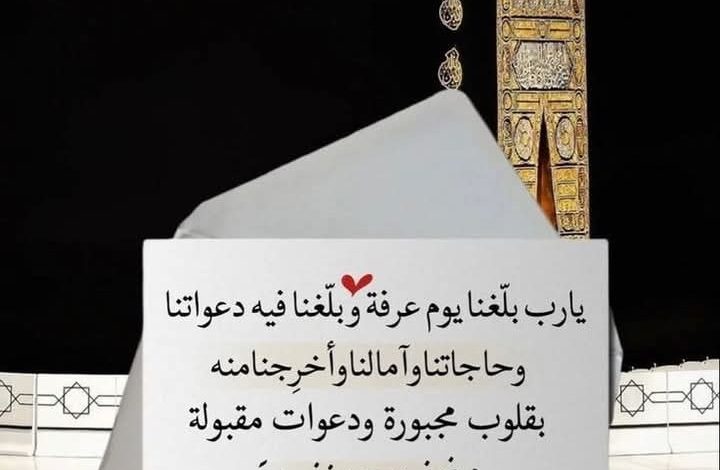 يارب بلّغنا يوم عرفة وبلّغنا فيه دعواتنا
وحاجاتنا وآمالنا وأخرِجنا منه
بقلوب مجبورة ودعوات مقبولة